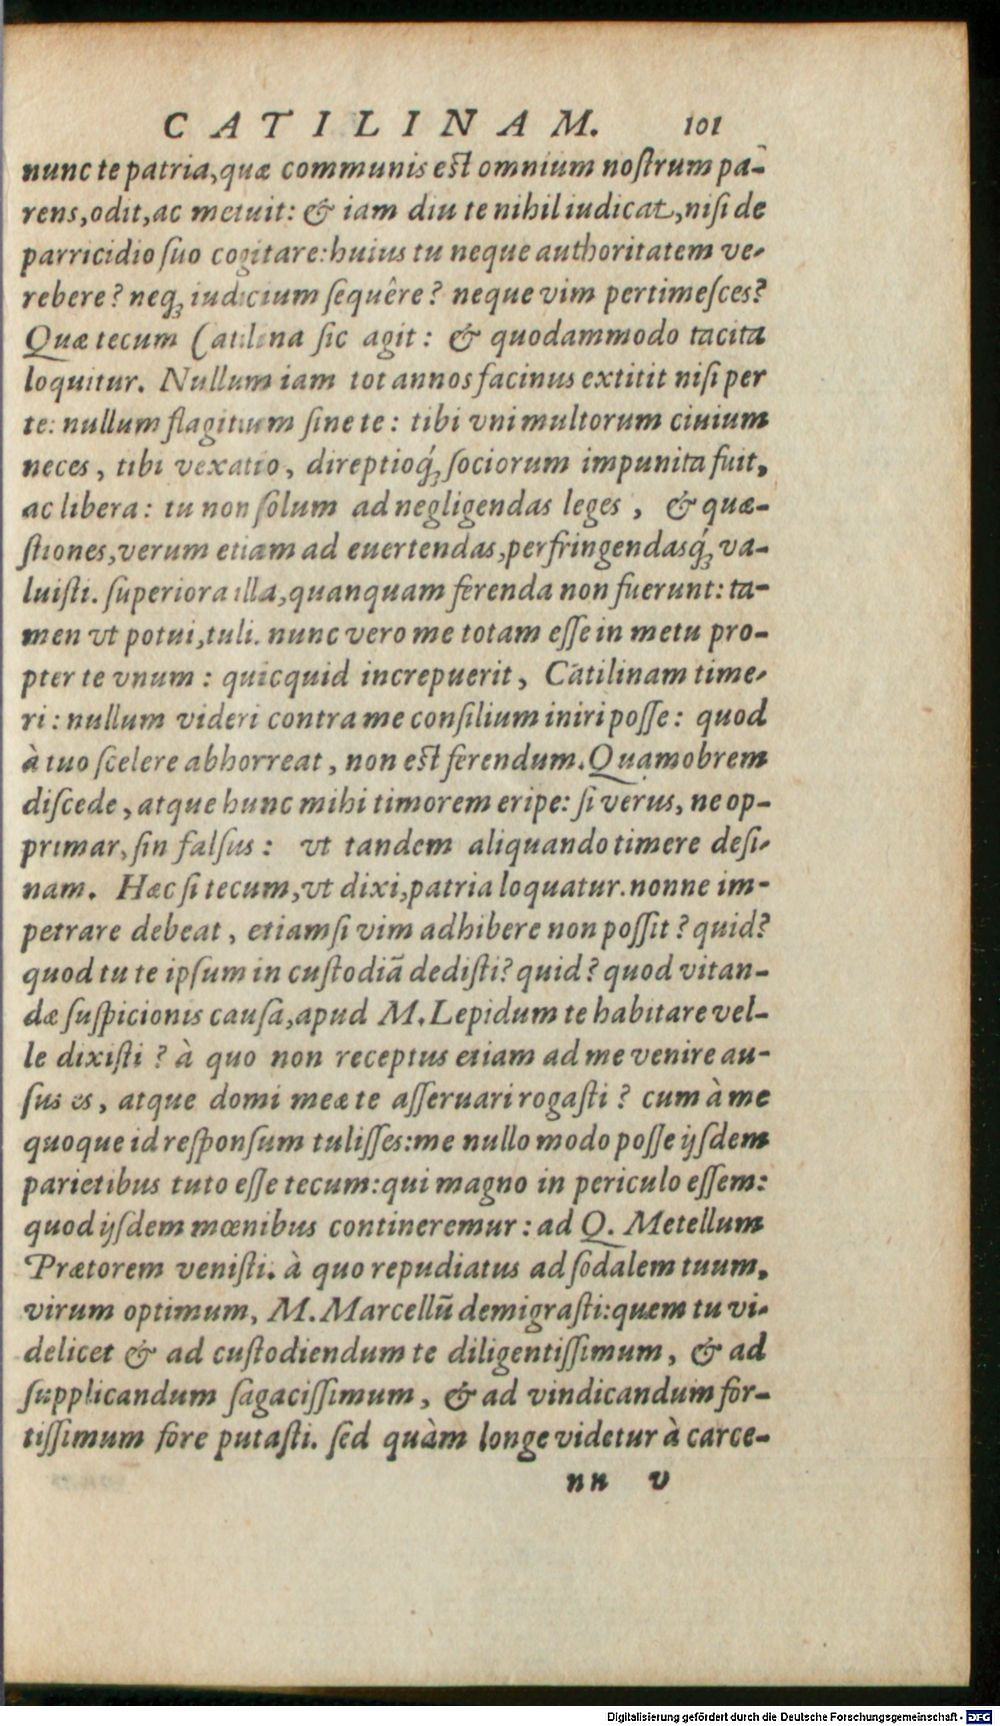 CATILINAM. 101
nunc te patria, quæ communis est omnium nostrum pa-
rens, odit, ac metuit: & iam diu te nihil iudicat, nisi de
parricidio suo cogitare: huius tu neque authoritatem ve-
rebere? neq; iudicium sequêre? neque vim pertimesces?
Quæ tecum Catilina sic agit: & quodammodo tacita
loquitur. Nullum iam tot annos facinus extitit nisi per
te: nullum flagitium sine te: tibi vni multorum ciuium
neces, tibi vexatio, direptioq́; sociorum impunita fuit,
ac libera: tu non solum ad negligendas leges, & quæ-
stiones, verum etiam ad euertendas, perfringendasq́; va-
luisti. superiora illa, quanquam ferenda non fuerunt: ta-
men vt potui, tuli. nunc vero me totam esse in metu pro-
pter te vnum: quicquid increpuerit, Catilinam time-
ri: nullum videri contra me consilium iniri posse: quod
à tuo scelere abhorreat, non est ferendum. Quamobrem
discede, atque hunc mihi timorem eripe: si verus, ne op-
primar, sin falsus: vt tandem aliquando timere desi-
nam. Hæc si tecum, vt dixi, patria loquatur. nonne im-
petrare debeat, etiamsi vim adhibere non possit? quid?
quod tu te ipsum in custodiā dedisti? quid? quod vitan-
dæ suspicionis causa, apud M. Lepidum te habitare vel-
le dixisti? à quo non receptus etiam ad me venire au-
sus es, atque domi meæ te asseruari rogasti? cum à me
quoque id responsum tulisses: me nullo modo posse ijsdem
parietibus tuto esse tecum: qui magno in periculo essem:
quod ijsdem mœnibus contineremur: ad Q. Metellum
Prætorem venisti. à quo repudiatus ad sodalem tuum,
virum optimum, M. Marcellū demigrasti: quem tu vi-
delicet & ad custodiendum te diligentissimum, & ad
supplicandum sagacissimum, & ad vindicandum for-
tissimum fore putasti. sed quàm longe videtur à carce-
nn v
Digitalisierung gefördert durch die Deutsche Forschungsgemeinschaft - DFG